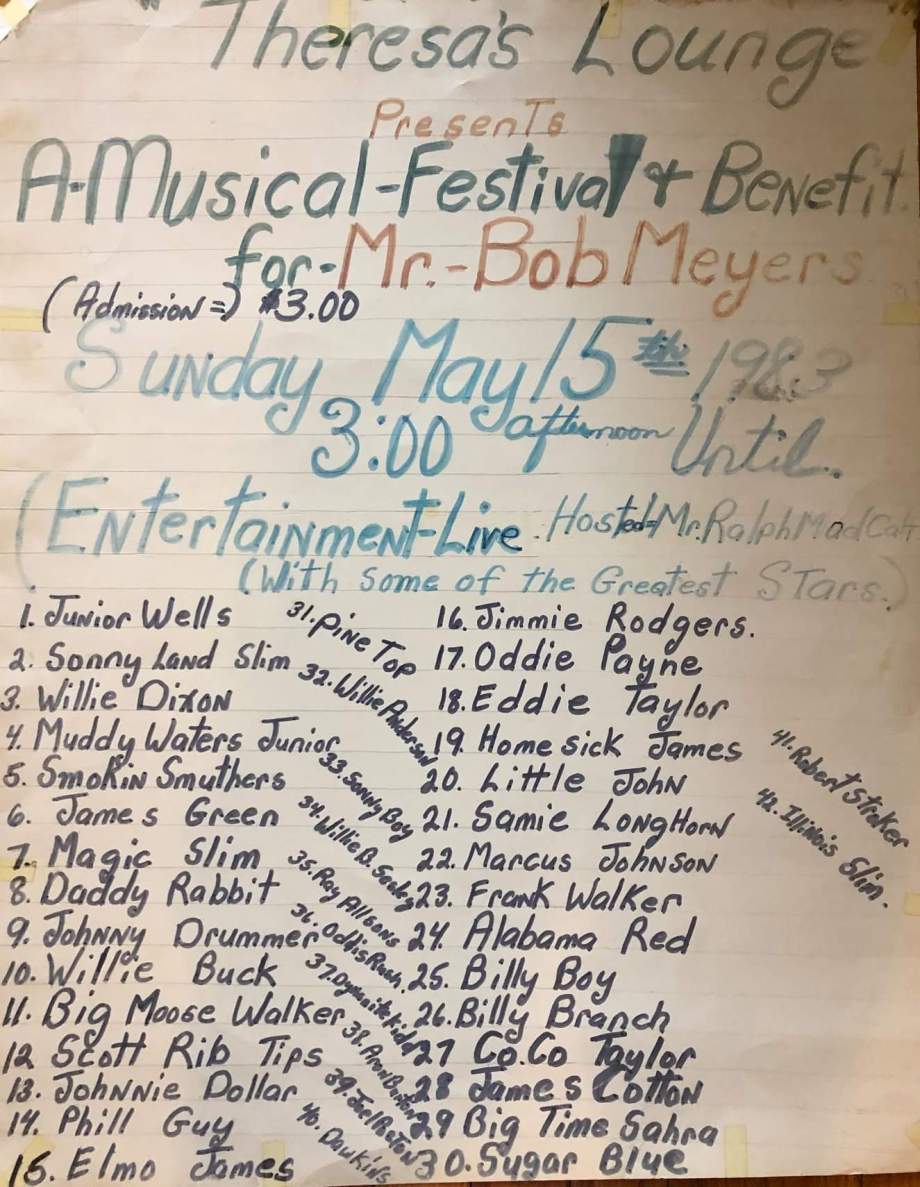 Theresa's Lounge
Presents
A-Musical-Festival + Benefit
for-Mr.-Bob Meyers
(Admission=) $3.00
Sunday May 15th 1983
3:00 afternoon Until.
(Entertainment-Live. Hosted=Mr. Ralph MadCat
(With Some of the Greatest STars.)
1. Junior Wells
2. Sonny Land Slim
3. Willie Dixon
4. Muddy Waters Junior
5. Smokin Smuthers
6. James Green
7. Magic Slim
8. Daddy Rabbit
9. Johnny Drummer
10. Willie Buck
11. Big Moose Walker
12 Scott Rib Tips
13. Johnnie Dollar
14. Phill Guy
15. Elmo James
31. Pine Top
32. Willie Anderson
33. Sonny Boy
34. Willie B.
35. Ray Allsons
36. Oddis Rush.
37. Dynamite Kidd
38. Aron Burton
39. Joel Poston
40. Dawkins
16. Jimmie Rodgers.
17. Oddie Payne
18. Eddie Taylor
19. Home sick James
20. Little John
21. Samie Long Horn
22. Marcus Johnson
23. Frank Walker
24. Alabama Red
25. Billy Boy
26. Billy Branch
27 Co.Co Taylor
28 James Cotton
29 Big Time Sahra
30. Sugar Blue
41. Robert Stroker
42. Illinois Slim.